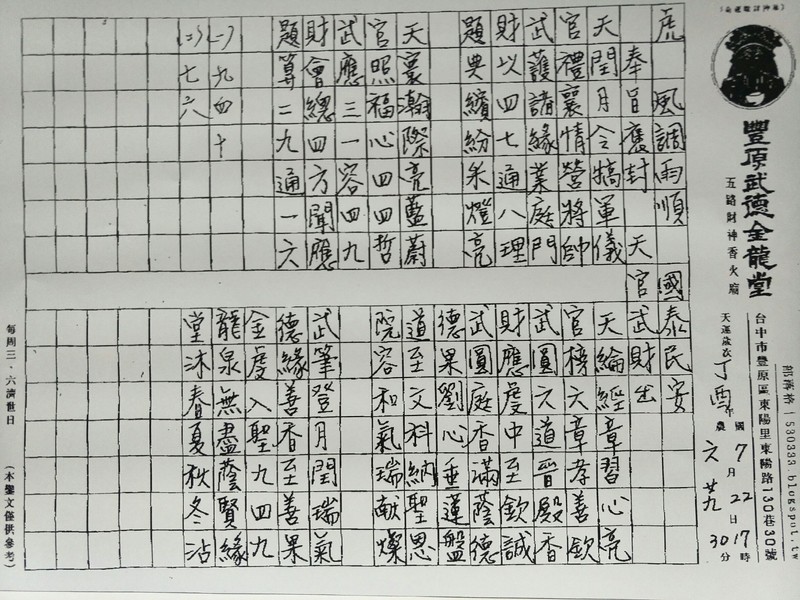 豐原武德金龍堂
五路財神香火廟
部落格 530333.blogspot.tw
台中市豐原區東陽里東陽路130巷30號
國7月22日17時30分
天運歲次丁酉年農六廿九
虎風調雨順國泰民安
奉旨應封天官武財出
天閏月令犒軍儀
官禮襄情營將帥
武護諸緣業庭門
財以四七通八理
題典繽紛采燈亮
天寰瀚際亮藍蔚
官照福心四四哲
武應三一容四九
財會總四方聞應
題算二九通一六
(一)九四十
(二)七六
天綸經章習心亮
官榜六章孝善欽
武圓六道晉殿香
財應虔中至欽誠
武圓庭香滿蔭德
德果劉心垂蓮盤
道至文科納聖恩
院容和氣瑞献燦
武筆登月閏瑞氣
德緣善香至善果
金虔入聖九四九
龍泉無盡蔭賢緣
堂沐春夏秋冬沾
每周三、六濟世日
(本鸞文僅供參考)